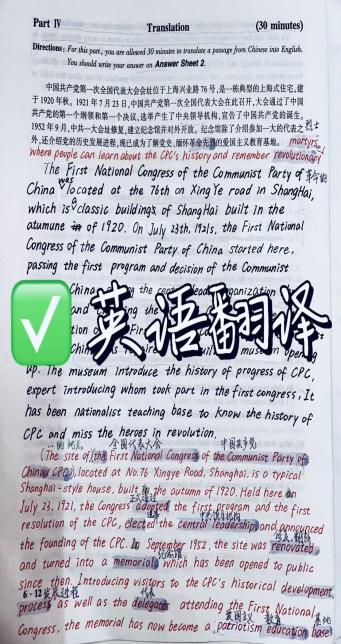 Part Ⅳ Translation (30 minutes)
Directions: For this part, you are allowed 30 minutes to translate a passage from Chinese into English.
You should write your answer on Answer Sheet 2.
中国共产党第一次全国代表大会会址位于上海兴业路76号,是一栋典型的上海式住宅,建
于1920年秋。1921年7月23日,中国共产党第一次全国代表大会在此召开,大会通过了中国
共产党的第一个纲领和第一个决议,选举产生了中央领导机构,宣告了中国共产党的诞生。
1952年9月,中共一大址修复,建立纪念馆并对外开放。纪念馆除了介绍参加一大的代表之
外,还介绍党的历史发展进程,现已成为了解党史、缅怀革命先烈的爱国主义教育基地。
烈士
martyrs.
where people can learn about the CPC's history and remember revolutionary
革命的
The First National Congress of the Communist Party of
China was located at the 76th on XingYe road in ShangHai,
which is a classic buildings of ShangHai built in the
atumune in of 1920. On July 23th, 1921s, the First National
Congress of the Communist Party of China started here,
passing the first program and decision of the Communist
China
and the
tion of
Chin
英语翻译
up. The museum introduce the history of progress of CPC,
expert introducing whom took part in the first congress. It
has been nationalist teaching base to know the history of
CPC and miss the heroes in revolution.
全国代表大会 中国共产党
(The site of) the First National Congress of the Communist Party of
China (CPC), located at No.76 Xingye Road, Shanghai, is a typical
Shanghai-style house, built in the autumn of 1920. Held here on
July 23, 1921, the Congress adopted the first program and the first
resolution of the CPC, elected the central leadership and announced
the founding of the CPC. In September 1952, the site was renovated
and turned into a memorial which has been opened to public
since then. Introducing visitors to the CPC's historical development
6·12 发展进程 代表
process as well as the delegates attending the First National
爱国主义 教育 基地
Congress, the memorial has now become a patriotism education base